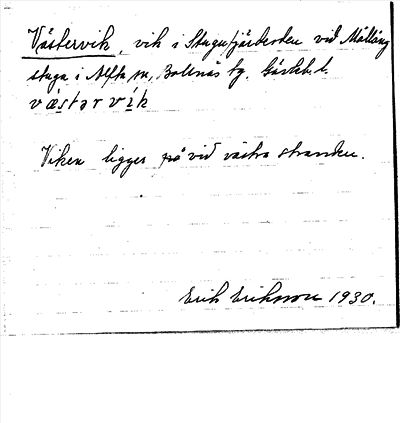 Västervik, vik i Stugufjärden vid Mållång
stuga i Alfta sn, Bollnäs tg. Gävleb. l.
västərvik
Viken ligger på vid västra stranden.
Erik Eriksson 1930.